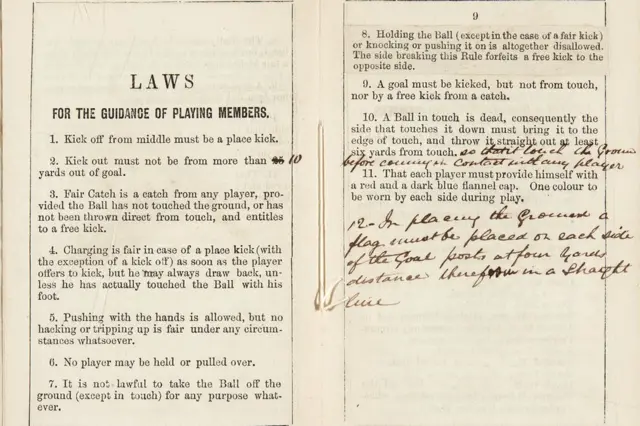 LAWS
FOR THE GUIDANCE OF PLAYING MEMBERS.
1. Kick off from middle must be a place kick.
2. Kick out must not be from more than 10
yards out of goal.
3. Fair Catch is a catch from any player, pro-
vided the Ball has not touched the ground, or has
not been thrown direct from touch, and entitles
to a free kick.
4. Charging is fair in case of a place kick (with
the exception of a kick off) as soon as the player
offers to kick, but he may always draw back, un-
less he has actually touched the Ball with his
foot.
5. Pushing with the hands is allowed, but no
hacking or tripping up is fair under any circum-
stances whatsoever.
6. No player may be held or pulled over.
7. It is not lawful to take the Ball off the
ground (except in touch) for any purpose what-
ever.
9
8. Holding the Ball (except in the case of a fair kick)
or knocking or pushing it on is altogether disallowed.
The side breaking this Rule forfeits a free kick to the
opposite side.
9. A goal must be kicked, but not from touch,
nor by a free kick from a catch.
10. A Ball in touch is dead, consequently the
side that touches it down must bring it to the
edge of touch, and throw it straight out at least
six yards from touch. so touch the Ground
before coming in contact with any player
11. That each player must provide himself with
a red and a dark blue flannel cap. One colour to
be worn by each side during play.
12 - In placing the Ground a
flag must be placed on each side
of the Goal posts at four Yards
distance therefrom in a Straight
line